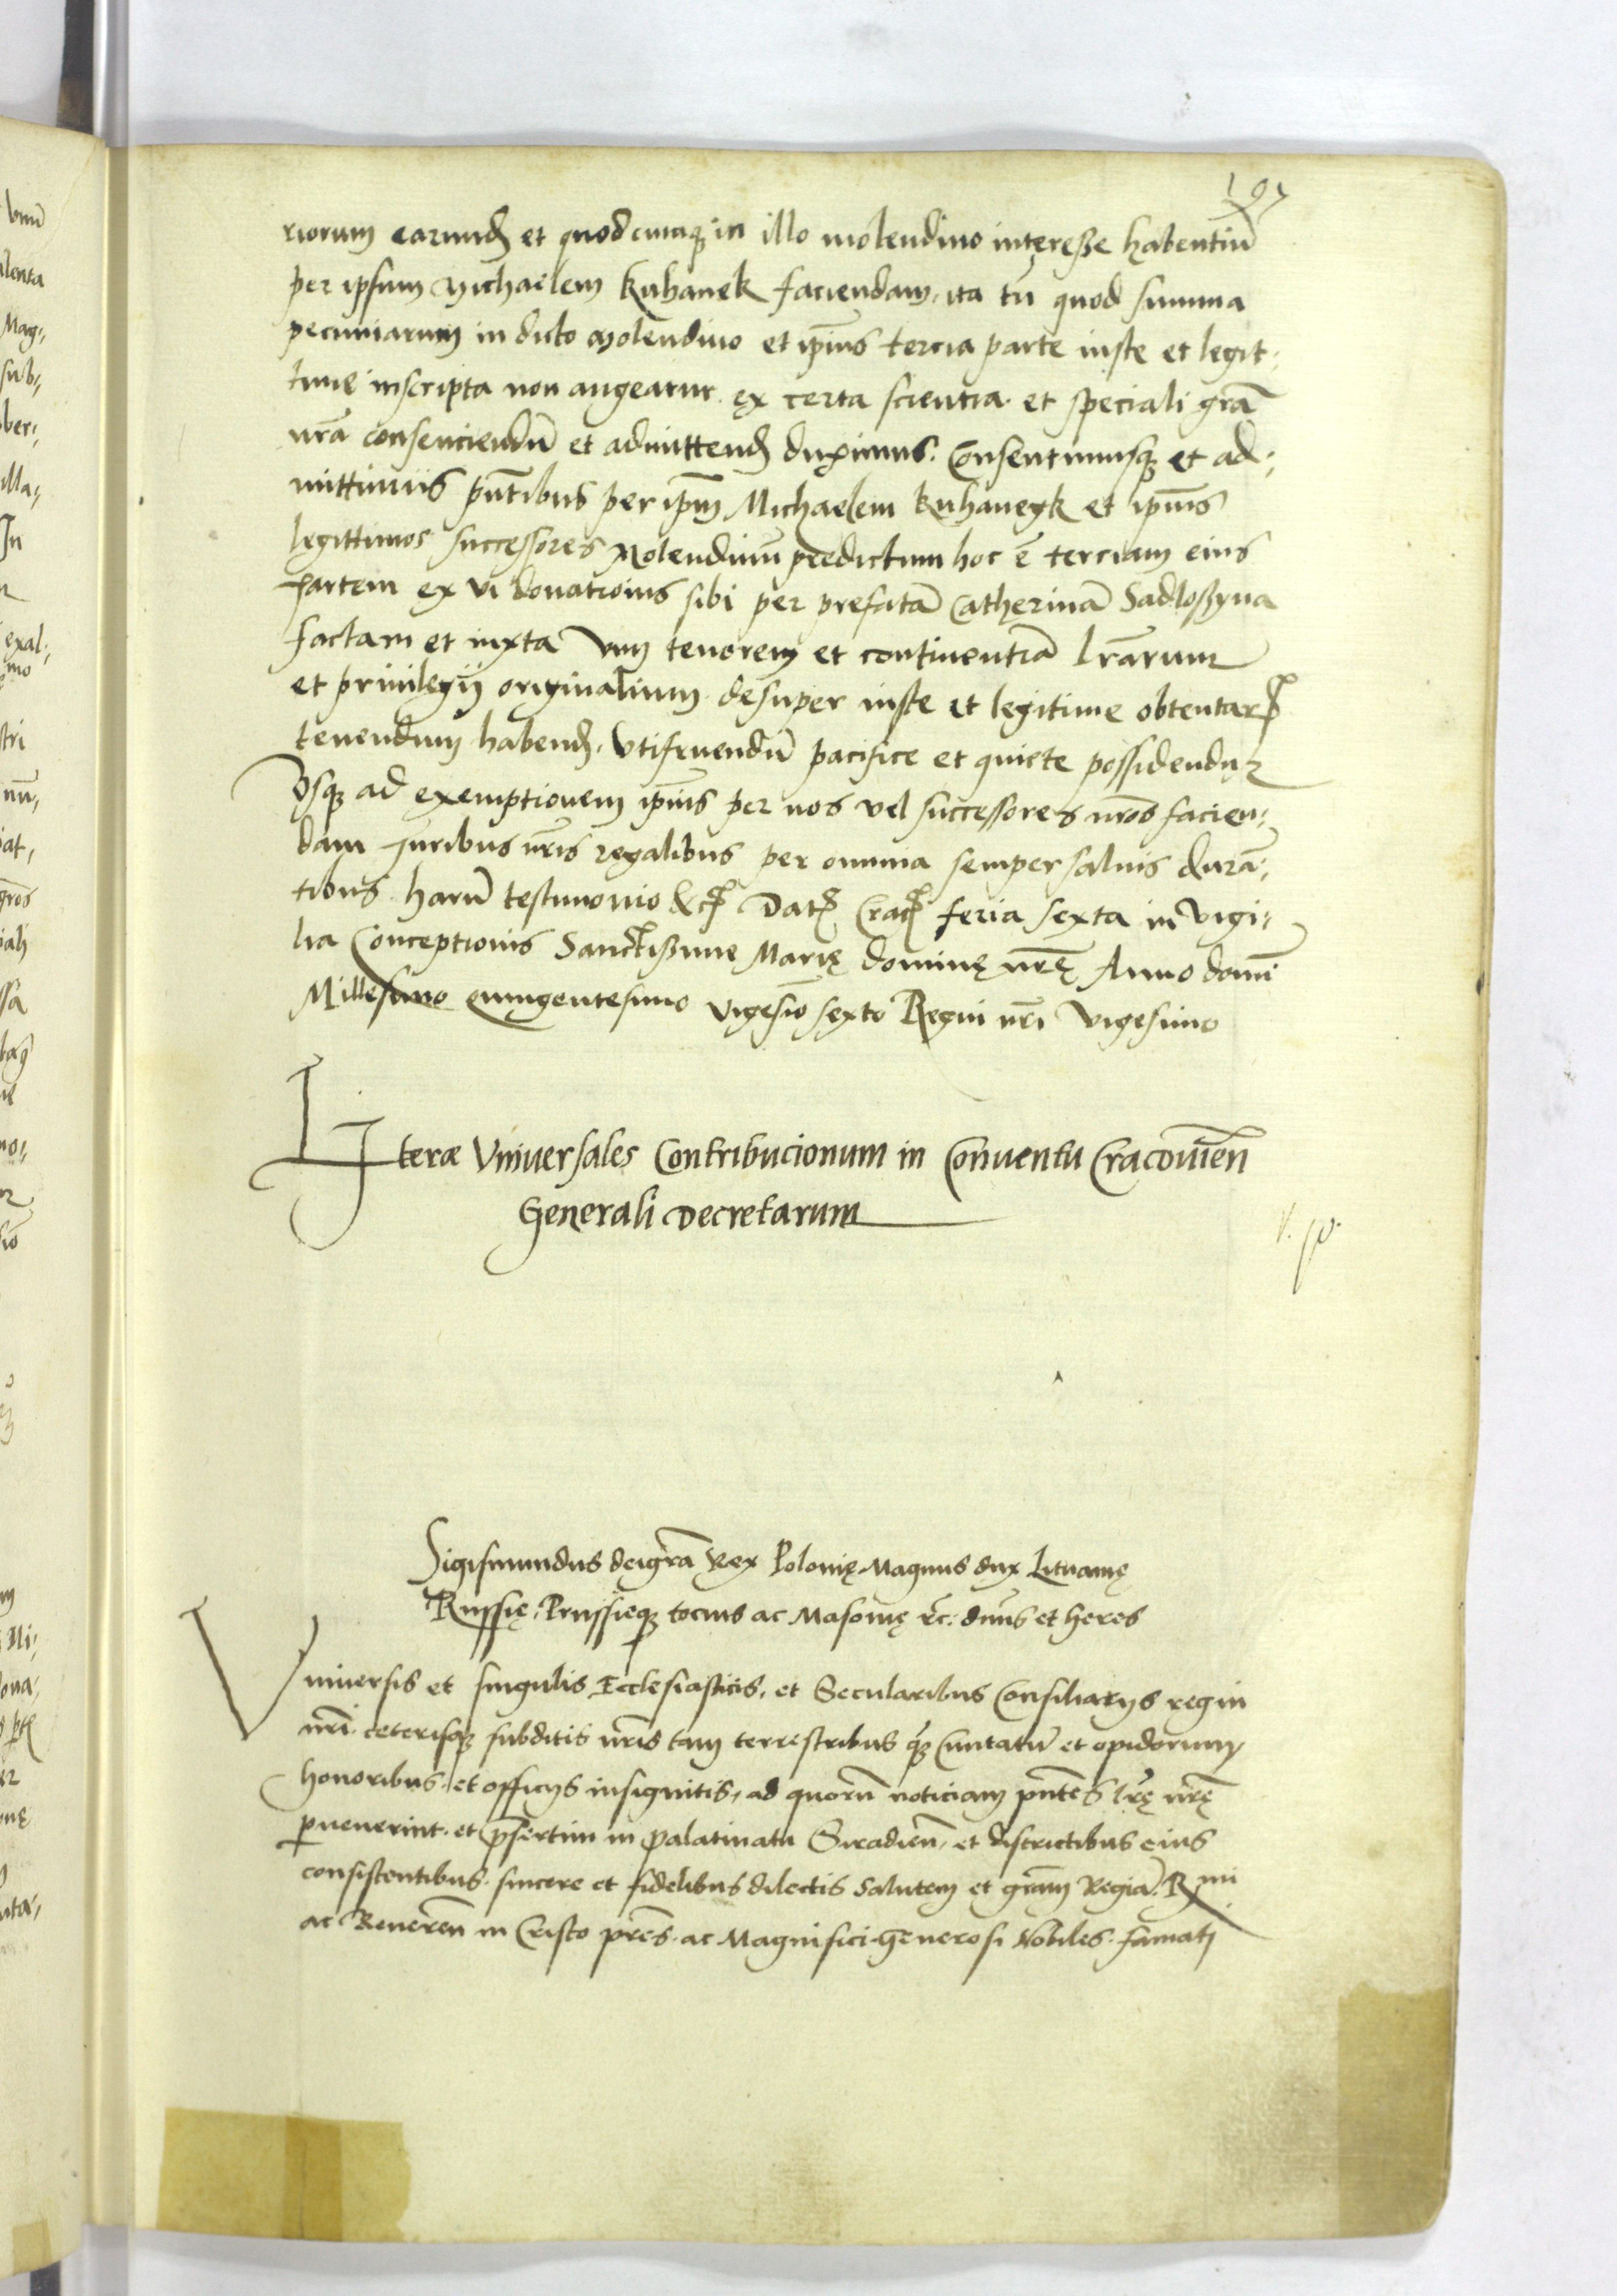 riorum earund et quodcumq in illo molendino interesse habentiū
per ipsum Michaelem Kuhanek faciendam, ita tn̄ quod summa
pecuniarum in dicto molendino et ip̄ius tercia parte iuste et legit:
time inscripta non augeatur. ex certa scientia et speciali grā
nrā consenciendū et admittend duximus. Consentimusq et ad:
mittimus pn̄tibus per ip̄m Michaelem Kuhaneyk et ip̄ius
legittimos successores Molendinū predictum hoc ē terciam eius
partem ex vi donationis sibi per prefatā Catherinā Sadloszyna
factam et iuxta vim tenorem et continentiā lrārum
et priuilegij originalium desuper iuste et legitime obtentar
tenendum habend. Vtifruendū pacifice et quiete possidendum
Vsq ad exemptionem ip̄ius per nos vel successores nrōs facien:
dam Juribus nrīs regalibus per omnia semper saluis durā:
tibus harū testimonio &c Dat Crac feria sexta in vigi:
lia Conceptionis Sanctissime Marię dominę nrę Anno domī
Millesimo quingentesimo vigesīo sexto Regni nrī Vigesimo
Literæ Vniuersales Contribucionum in Conuentu Cracouien̄
Generali Decretarum
Sigismundus dei grā Rex Polonię Magnus dux Lituanię
Russię, Prussieq tocius ac Masouię &c: dnūs et heres
Vniuersis et singulis Ecclesiasticis, et Secularibus Consiliarijs regni
nrī ceterisq subditis nrīs tam terrestribus q Ciuitatū et opidorum,
honoribus et officijs insignitis, ad quorū noticiam pn̄tes lrę nrę
puenerint et psertim in palatinatu Siradien̄, et districtibus eius
consistentibus sincere et fidelibus dilectis Salutem et grām Regiā. Rmi
ac Reueren̄ in Cristo prēs ac Magnifici Generosi Nobiles famati